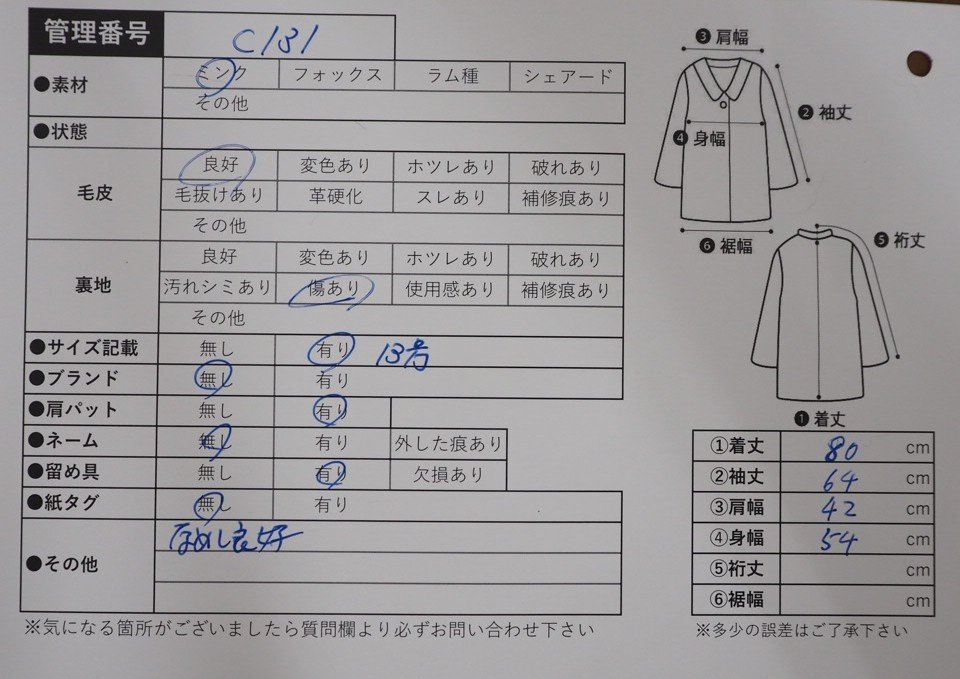 管理番号 C131
●素材 ミンク フォックス ラム種 シェアード
その他
●状態
毛皮 良好 変色あり ホツレあり 破れあり
毛抜けあり 革硬化 スレあり 補修痕あり
その他
裏地 良好 変色あり ホツレあり 破れあり
汚れシミあり 傷あり 使用感あり 補修痕あり
その他
●サイズ記載 無し 有り 13号
●ブランド 無し 有り
●肩パット 無し 有り
●ネーム 無し 有り 外した痕あり
●留め具 無し 有り 欠損あり
●紙タグ 無し 有り
●その他 なめし良好
※気になる箇所がございましたら質問欄より必ずお問い合わせ下さい
❸肩幅
❷袖丈
❹身幅
❻裾幅
❺裄丈
❶着丈
①着丈 80 cm
②袖丈 64 cm
③肩幅 42 cm
④身幅 54 cm
⑤裄丈 cm
⑥裾幅 cm
※多少の誤差はご了承下さい